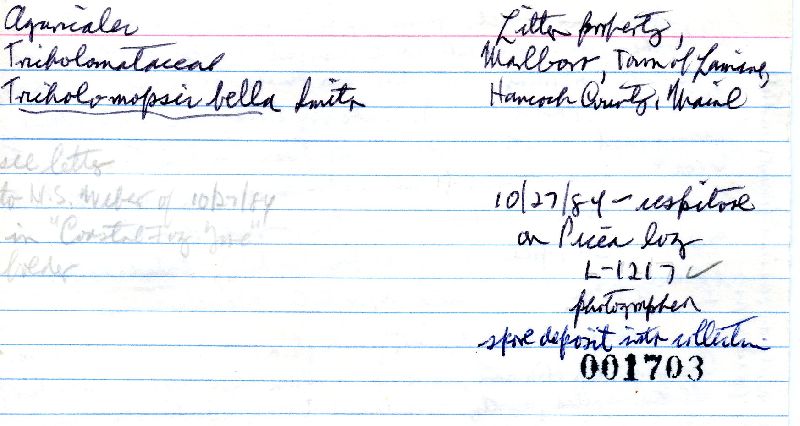 Agaricales
Tricholomataceae
Tricholomopsis bella Smith
Litten property,
Marlboro, Town of Lamoine,
Hancock County, Maine
see letter
to N.S. Weber of 10/27/84
in "Coastal Fog Zone"
folder
10/27/84 - cespitose
on Picea log
L-1217 ✓
photographed
spore deposit with collection
001703